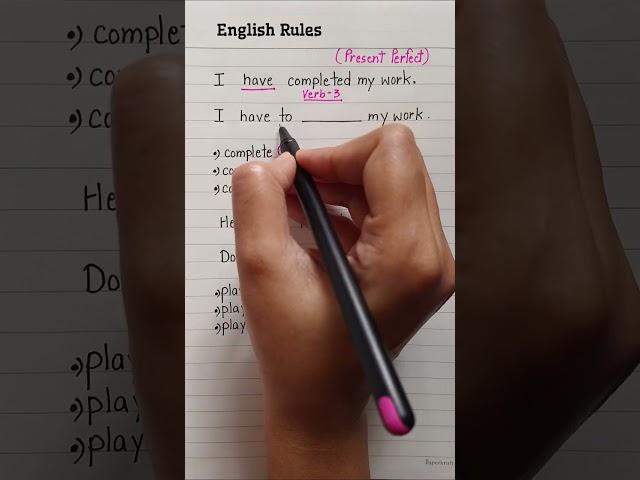 English Rules
(Present Perfect)
I have completed my work.
Verb-3
I have to ______ my work.
•) complete
•) co
•) co
He
Do
•) play
•) play
•) play
Paperkraft